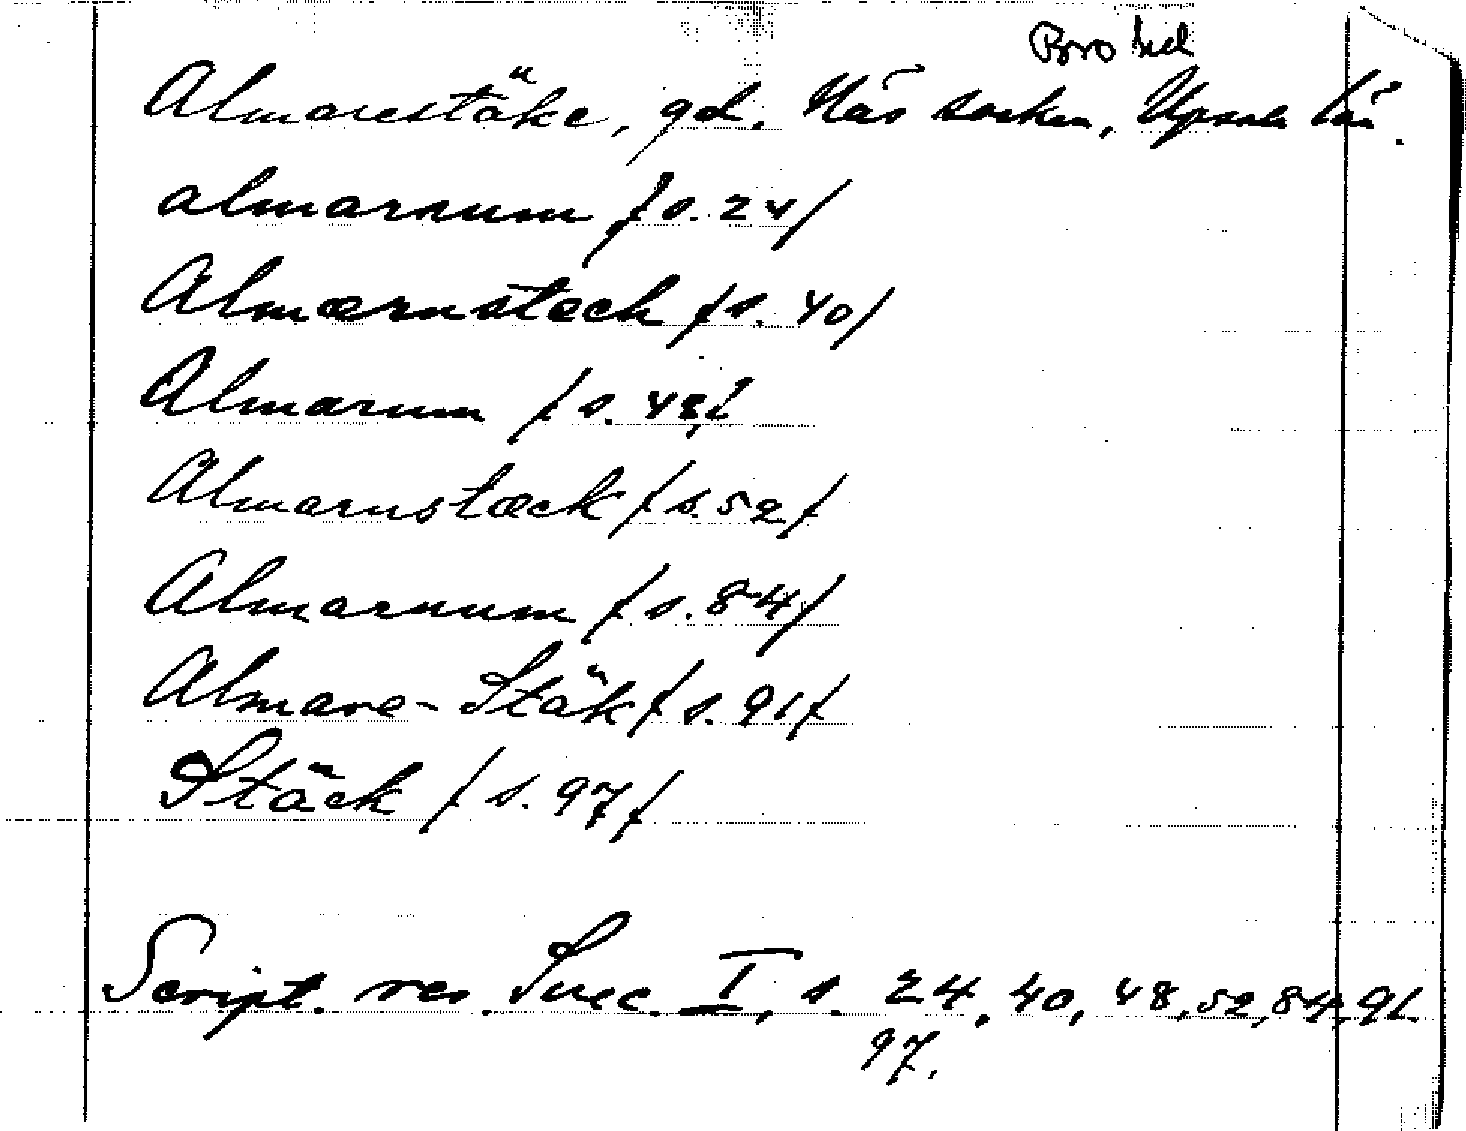 Bro hd
Almarestäke, gd. Näs socken, Upsala län.
almarnum / s. 24/
Almærnstæck / s. 40/
Almarum / s. 48/
Almarnstæck / s. 52/
Almarnum / s. 84/
Almare-Stäk / s. 91/
Stäck / s. 97/
Script. rer. Suec. I, s. 24, 40, 48, 52, 84, 91.
97.